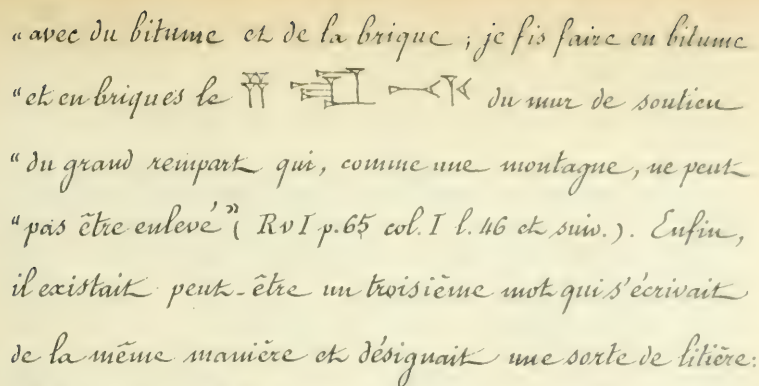 « avec du bitume et de la brique ; je fis faire en bitume
« et en briques le du mur de soutien
« du grand rempart qui, comme une montagne, ne peut
« pas être enlevé » ( RvI p.65 col. I l. 46 et suiv. ). Enfin,
il existait peut-être un troisième mot qui s'écrivait
de la même manière et désignait une sorte de litière: